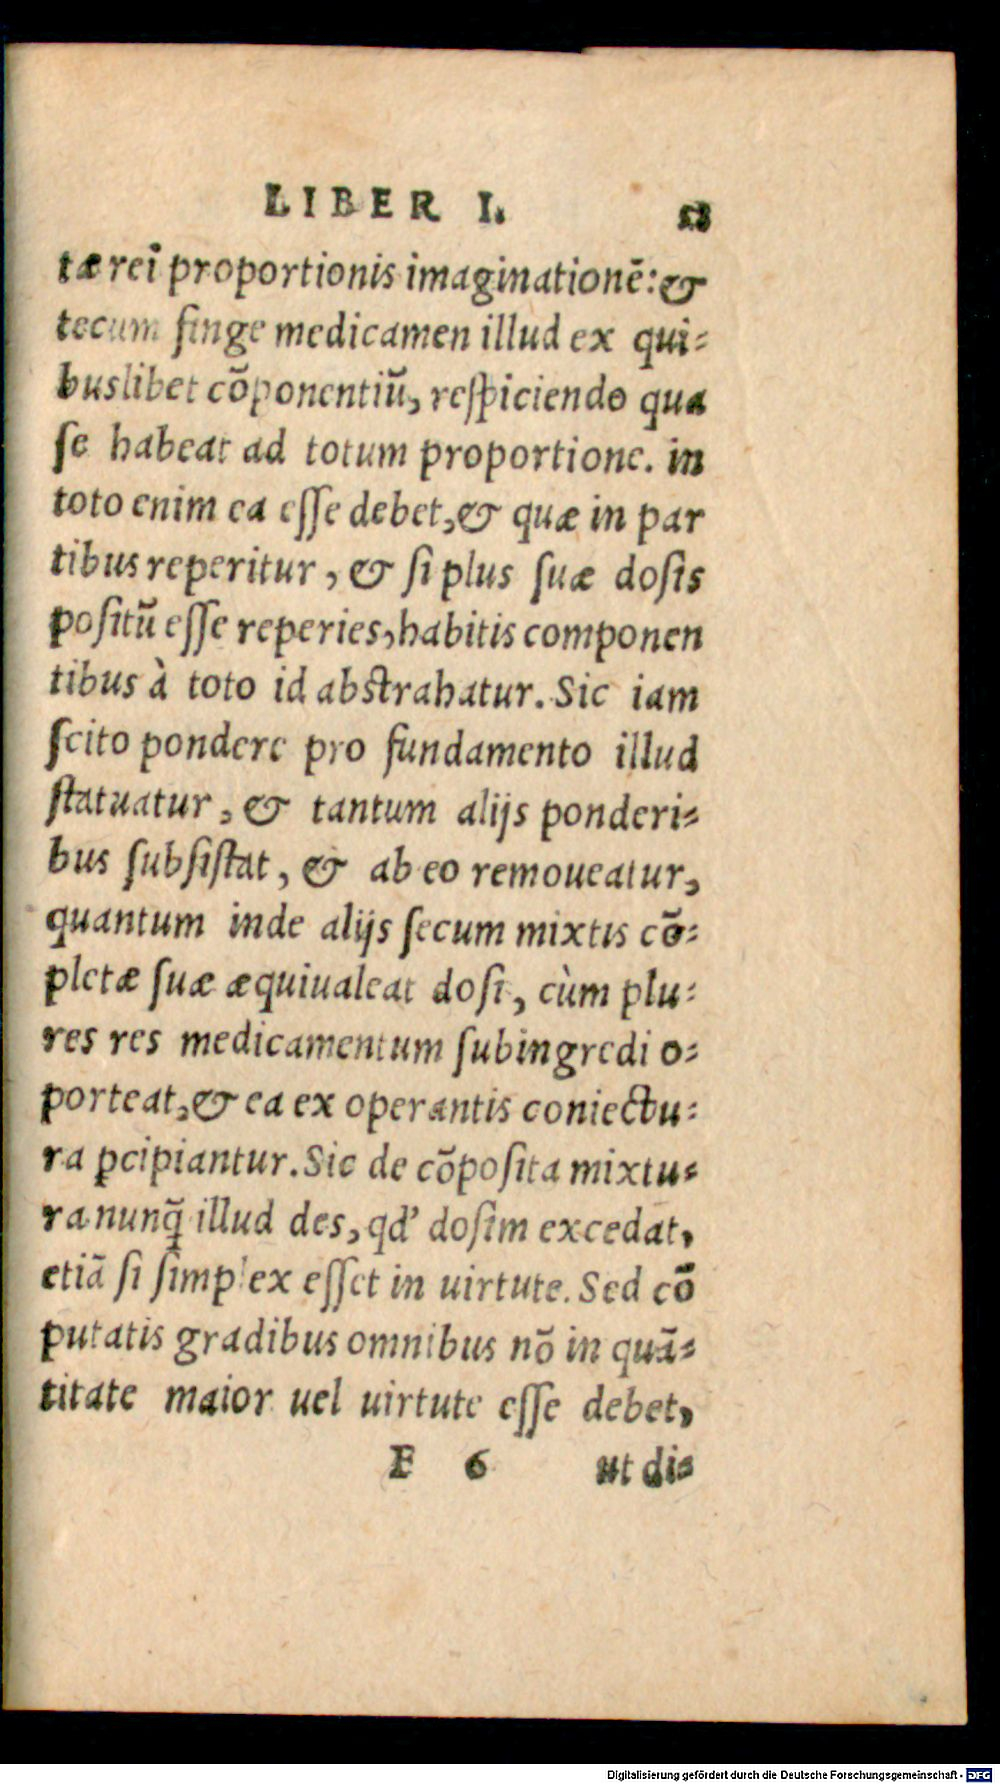 LIBER I.
tæ rei proportionis imaginationē: &
tecum finge medicamen illud ex qui-
buslibet cōponentiū, reſpiciendo qua
ſe habeat ad totum proportione. in
toto enim ea eſſe debet, & quæ in par
tibus reperitur, & ſi plus ſuæ doſis
poſitū eſſe reperies, habitis componen
tibus à toto id abſtrahatur. Sic iam
ſcito pondere pro fundamento illud
ſtatuatur, & tantum alijs ponderi-
bus ſubſiſtat, & ab eo remoueatur,
quantum inde alijs ſecum mixtis cō-
pletæ ſuæ æquiualeat doſi, cùm plu-
res res medicamentum ſubingredi o-
porteat, & ea ex operantis coniectu-
ra ꝑcipiantur. Sic de cōpoſita mixtu-
ra nunq̃ illud des, qd' doſim excedat,
etiā ſi ſimplex eſſet in uirtute. Sed cō
putatis gradibus omnibus nō in quā-
titate maior uel uirtute eſſe debet,
F 6 ut di-
Digitalisierung gefördert durch die Deutsche Forschungsgemeinschaft - DFG